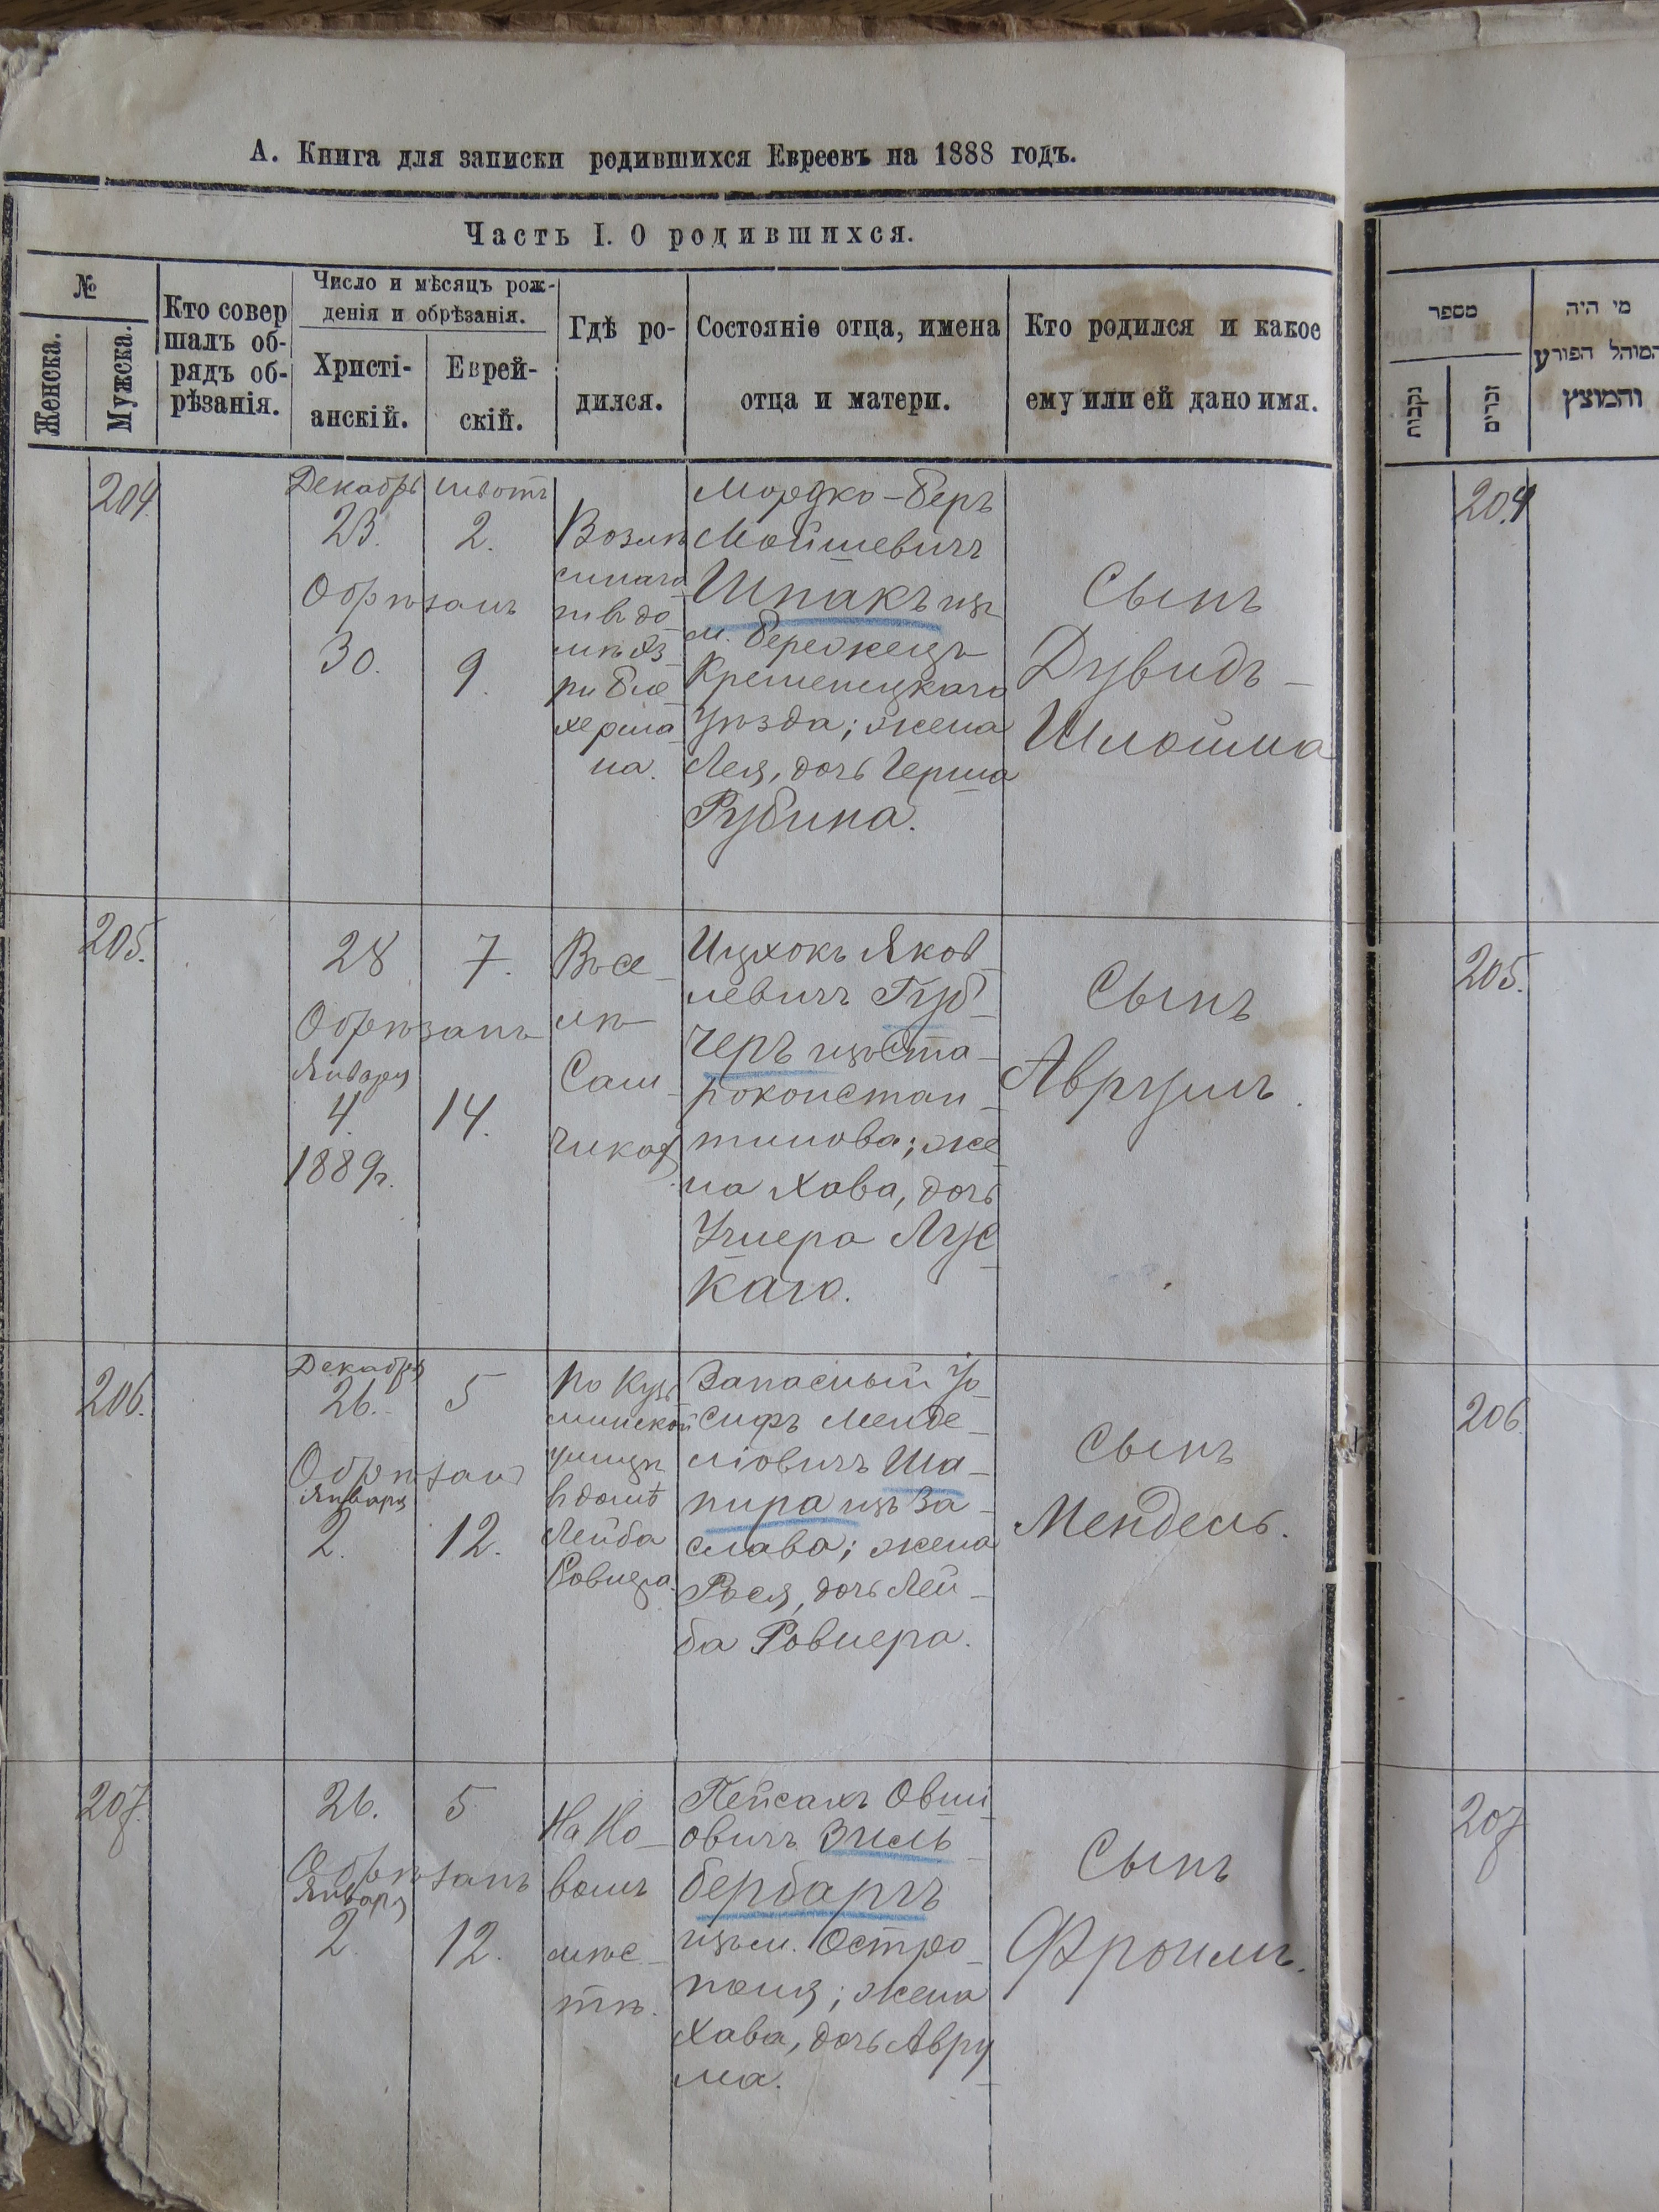 А. Книга для записки родившихся Евреевъ на 1888 годъ.
Часть I. О родившихся.
№
Женска.
Мужска.
Кто совер
шалъ об-
рядъ об-
рѣзанія.
Число и мѣсяцъ рож-
денія и обрѣзанія.
Христі-
анскій.
Еврей-
скій.
Гдѣ ро-
дился.
Состояніе отца, имена
отца и матери.
Кто родился и какое
ему или ей дано имя.
204.
Декабрь
23.
Обрѣзанъ
30.
2.
9.
на.
Мордко-Беръ
Мойшевичъ
Шпакъ изъ
м. Бережецъ
Кременецкаго
уѣзда; жена
Лея, дочь Герша
Рубина.
Сынъ
Дувидъ-
Шлойма
205.
28
Обрѣзанъ
Января
4.
1889г.
7.
14.
Въ се-
лѣ
Сам-
чикахъ
Ицхокъ Яков
левичъ Губ-
черъ изъ Ста-
роконстан-
тинова; же
на Хава, дочь
Ушера Лус
каго.
Сынъ
Аврумъ.
206.
Декабря
26.
Обрѣзанъ
Января
2.
5
12.
По Кузь
минской
улицѣ
в домѣ
Лейба
Ровнера.
Запасный Іо-
сифъ Менде-
ліовичъ Ша-
пира изъ За-
слава; жена
Рося, дочь Лей-
ба Ровнера.
Сынъ
Мендель.
207.
26.
Обрѣзанъ
Января
2.
5
12.
На Но-
вомъ
мѣс-
тѣ.
Пейсахъ Овши
овичъ Зиль-
бербаргъ
изъ м. Остро-
поля; жена
Хава, дочь Авру
ма.
Сынъ
Фроимъ.
מספר
נקבות
זכרים
מי היה
המוהל הפורע
והמוצץ
204
205.
206
207